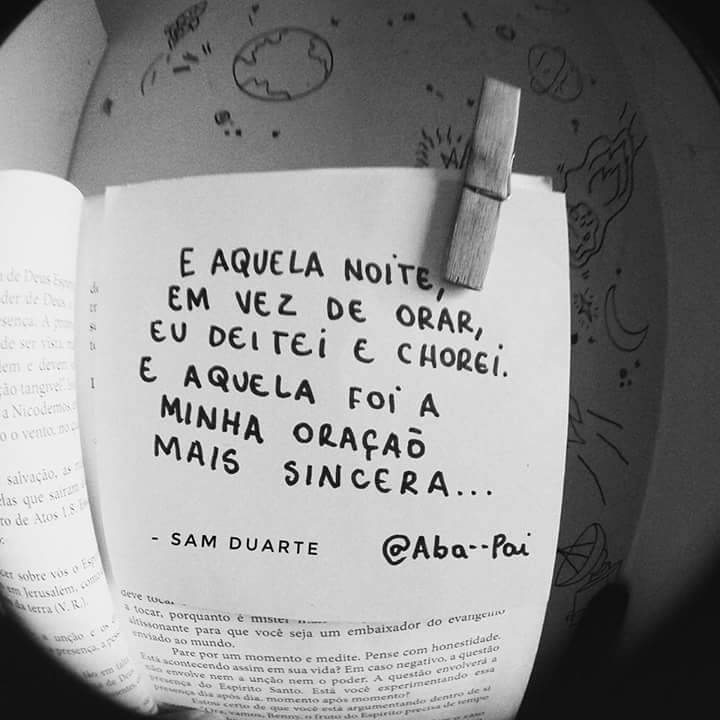 E AQUELA NOITE,
EM VEZ DE ORAR,
EU DEITEI E CHOREI.
E AQUELA FOI A
MINHA ORAÇAÕ
MAIS SINCERA...
- SAM DUARTE
@Aba--Pai
de Deus
der de Deus
sença. A
de ser vista
lem e deven
ção tangível.
a Nicodemos
o o vento, no
salvação, as
elas que saíram
ro de Atos 1.8:
cer sobre vós o
em Jerusalém,
da terra (V. R.).
a unção e os
presença, a
deve tocar
a tocar, porquanto é mister
altissonante para que você seja um embaixador do evangelho
enviado ao mundo.
Pare por um momento e medite. Pense com honestidade.
Está acontecendo assim em sua vida? Em caso negativo, a questão
não envolve nem a unção nem o poder. A questão envolverá a
presença do Espírito Santo. Está você experimentando essa
presença dia após dia, momento após momento?
Estou certo de que você está argumentando dentro de si
vamos, Benny, o fruto do Espírito precisa de tempo